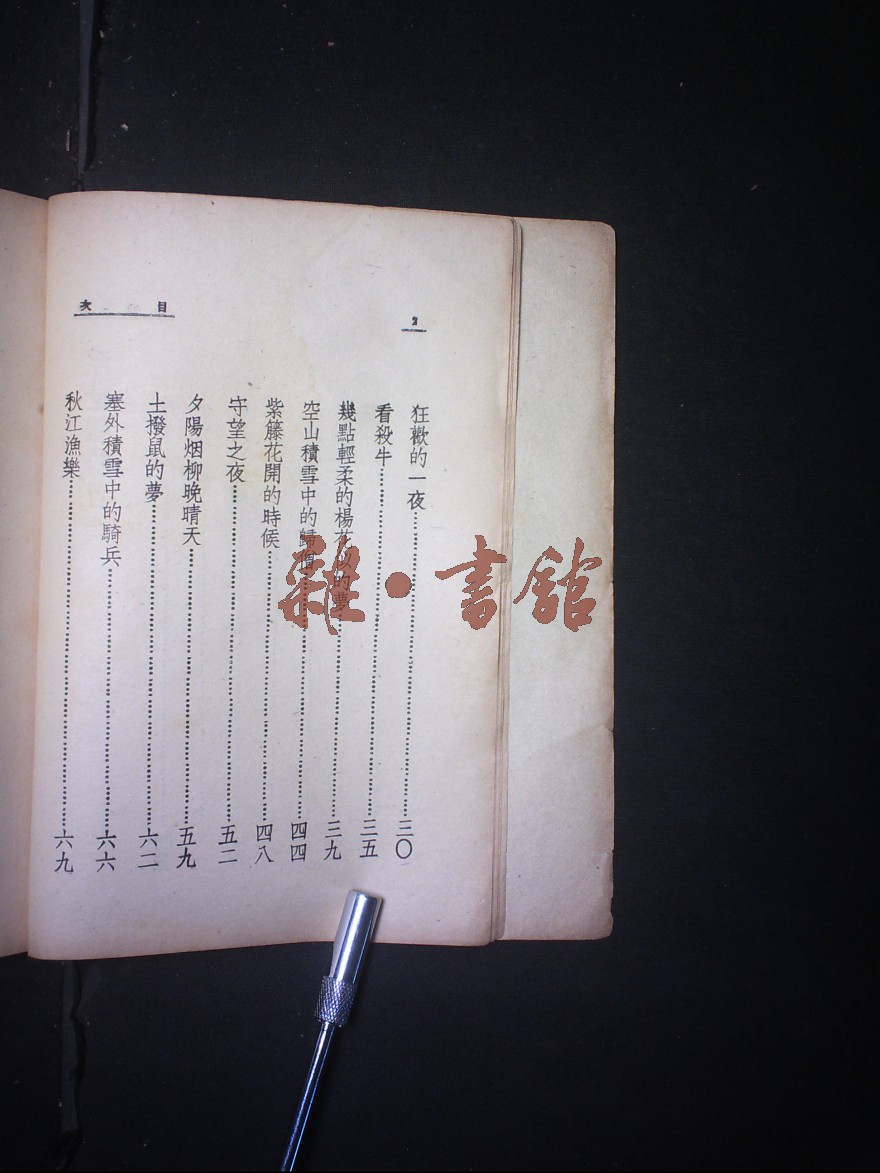 目次
2
狂歡的一夜……三〇
看殺牛……三五
幾點輕柔的楊花似的夢……三九
空山積雪中的歸僧……四四
紫籐花開的時候……四八
守望之夜……五二
夕陽烟柳晚晴天……五九
土撥鼠的夢……六二
塞外積雪中的騎兵……六六
秋江漁樂……六九
雜·書館